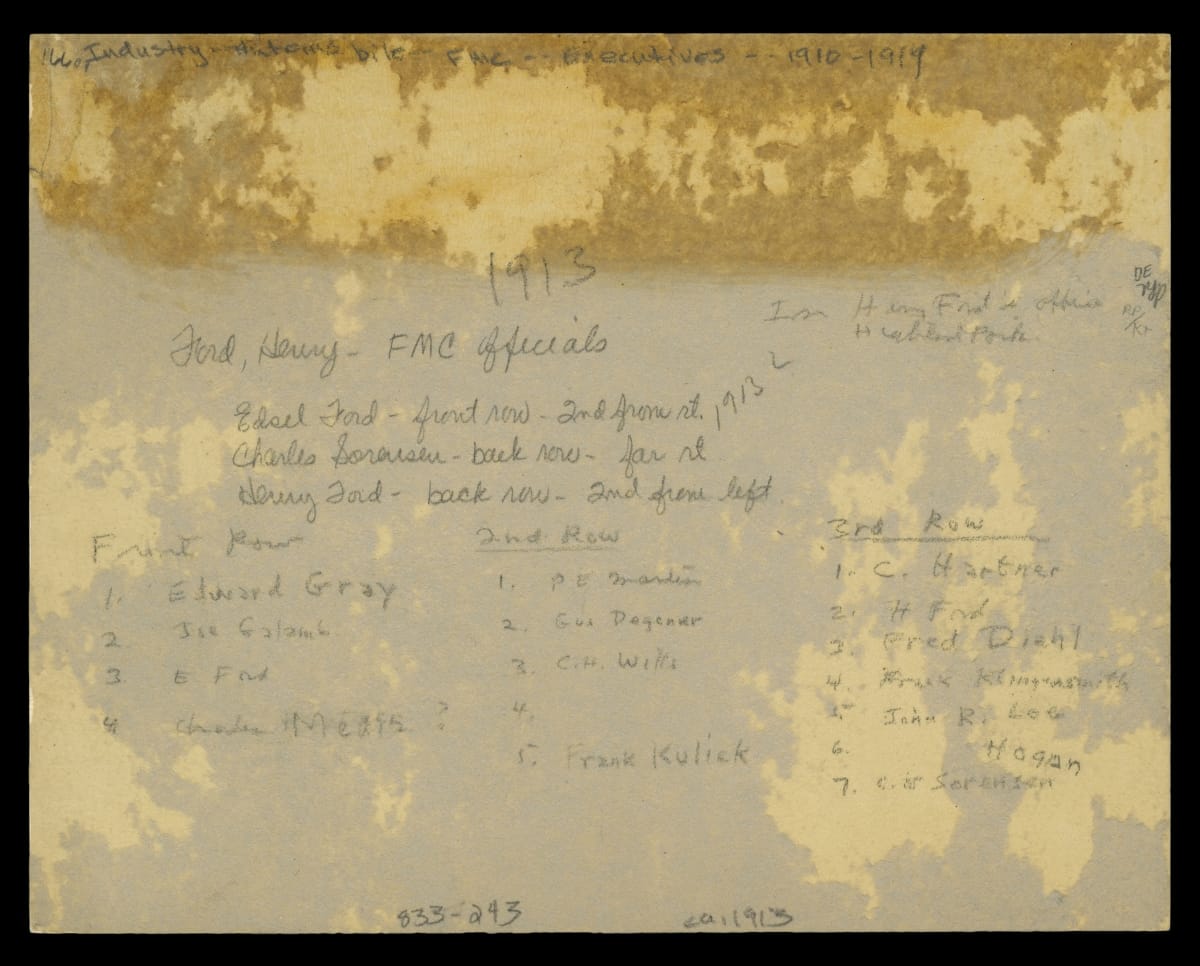 Industry -- Automobile -- FMC -- Executives -- 1910-1919
1913
In Henry Ford's office
Highland Park
DE
Ford, Henry - FMC Officials
Edsel Ford - front row - 2nd from rt. 1913
Charles Sorensen - back row - far rt
Henry Ford - back row - 2nd from left.
Front Row
1. Edward Gray
2 Joe Galamb
3. E Ford
4 Charles Meads ?
2nd Row
1. P E Martin
2. Gus Degener
3. C.H. Wills
4.
5. Frank Kulick
3rd Row
1. C. Hartner
2. H Ford
3. Fred Diahl
4. Frank Klingensmith
5. John R. Lee
6. Hogan
7. Sorensen
833-243
ca. 1913